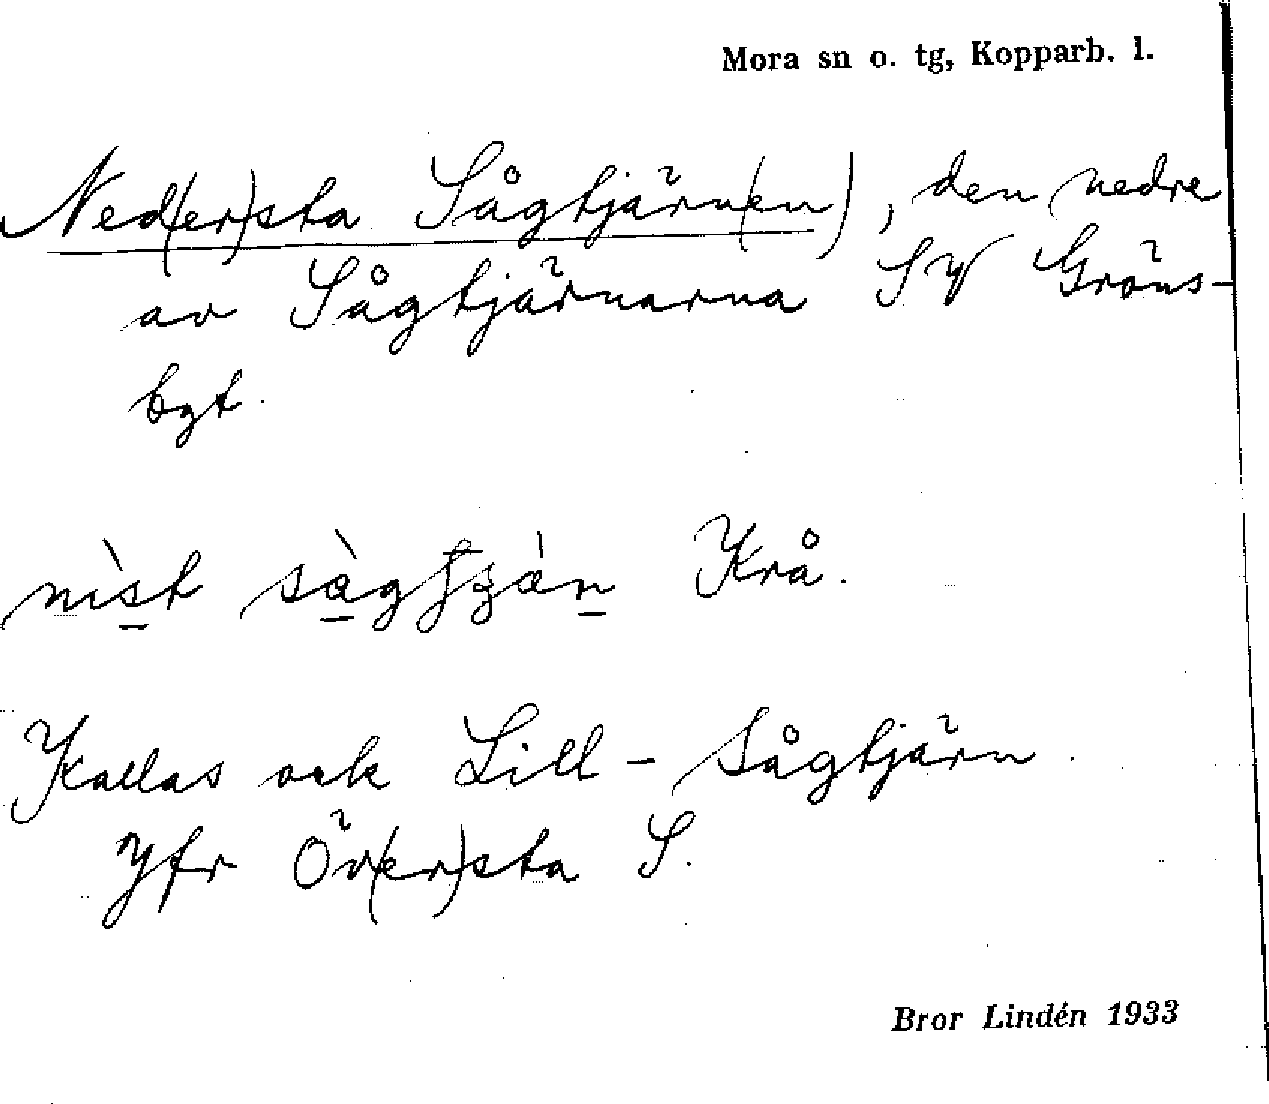 Mora sn o. tg, Kopparb. l.
Ned(er)sta Sågtjärn(en), den nedre
av Sågtjärnarna SV Gröns-
bgt.
Krå.
Kallas ock Lill-Sågtjärn.
Jfr Öv(er)sta S.
Bror Lindén 1933